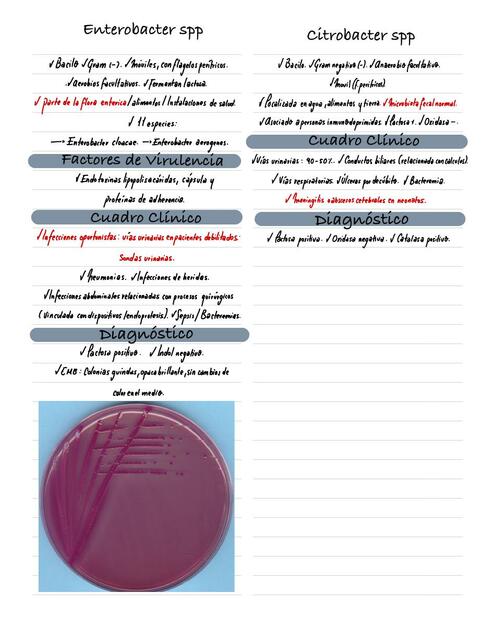 Enterobacter spp
✓ Bacilo ✓ Gram (-). ✓ Móviles, con flagelos perítricos.
✓ Aerobios facultativos. ✓ Fermentan lactosa.
✓ Parte de la flora enterica/alimentos/Instalaciones de salud.
✓ 11 especies:
→ Enterobacter cloacae. → Enterobacter aerogenes.
Factores de Virulencia
✓ Endotoxinas lipopolisacáridas, cápsula y
proteínas de adherencia.
Cuadro Clínico
✓ Infecciones oportunistas: vías urinarias en pacientes debilitados.
Sondas urinarias.
✓ Neumonías. ✓ Infecciones de heridas.
✓ Infecciones abdominales relacionadas con procesos quirúrgicos
(vinculada con dispositivos/endoprotesis). ✓ Sepsis/Bacteremias.
Diagnóstico
✓ Lactosa positivo. ✓ Indol negativo.
✓ EMB: Colonias guindas, opaca brillante, sin cambios de
color en el medio.
Citrobacter spp
✓ Bacilo. ✓ Gram negativo (-). ✓ Anaerobio facultativo.
✓ Móvil (F. perítricos)
✓ Localizada en agua, alimentos y tierra. ✓ Microbiota fecal normal.
✓ Asociado a personas inmunodeprimidas. ✓ Lactosa +. ✓ Oxidasa -.
Cuadro Clínico
✓ Vías urinarias: 40-50%. ✓ Conductos biliares (relacionada con cálculos).
✓ Vías respiratorias. ✓ Úlceras por decúbito. ✓ Bacteremia.
✓ Meningitis o abscesos cerebrales en neonatos.
Diagnóstico
✓ Lactosa positiva. ✓ Oxidasa negativa. ✓ Catalasa positivo.